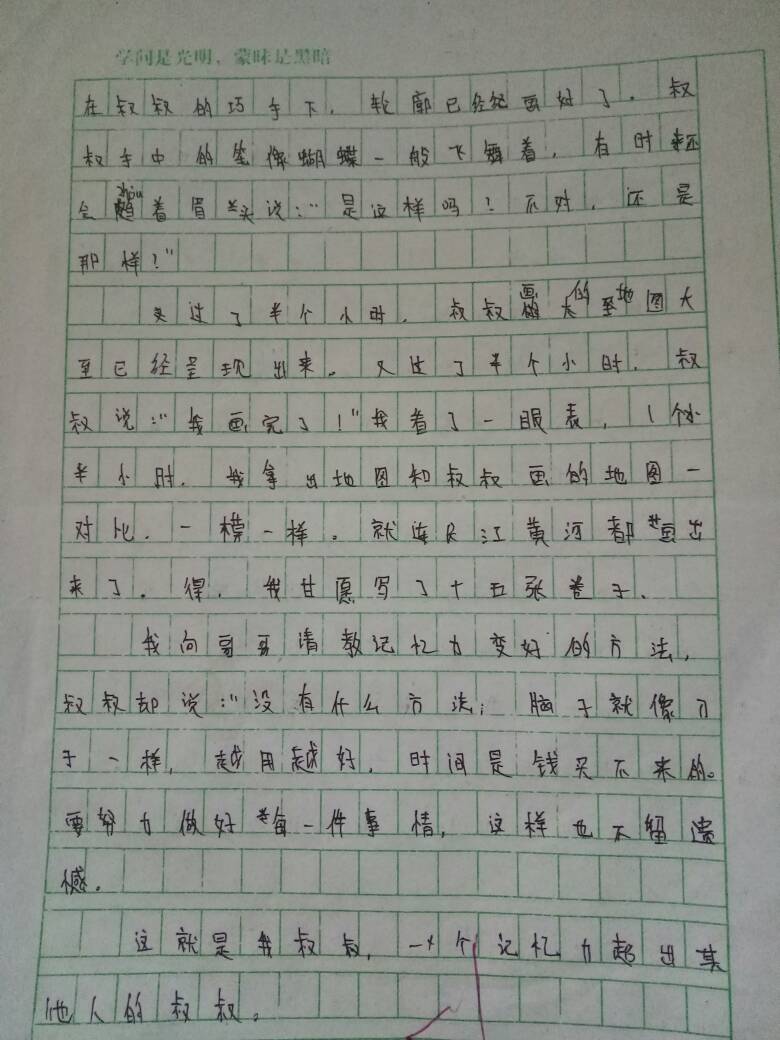 学问是光明，蒙昧是黑暗
在叔叔的巧手下，轮廓已经画好了。叔
叔手中的笔像蝴蝶一般飞舞着，有时还
zhòu
会着眉头说：“是这样吗？不对，还是
那样！”
又过了半个小时，叔叔画的地图大
至已经呈现出来。又过了半个小时，叔
叔说：“我画完了！”我看了一眼表，1个
半小时，我拿出地图和叔叔画的地图一
对比，一模一样。就连长江黄河都画出
来了。得，我甘愿写了十五张卷子。
我向哥哥请教记忆力变好的方法，
叔叔却说：“没有什么方法；脑子就像刀
子一样，越用越好，时间是钱买不来的。
要努力做好每一件事情，这样也不留遗
憾。
这就是我叔叔，一个记忆力超出其
他人的叔叔。